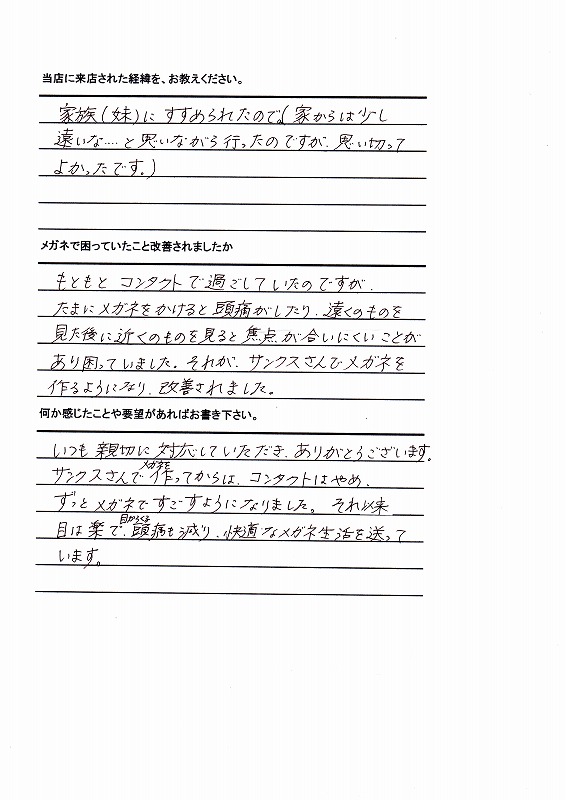 当店に来店された経緯を、お教えください。
家族(妹)にすすめられたので。(家からは少し
遠いな....と思いながら行ったのですが、思い切って
よかったです。)
メガネで困っていたこと改善されましたか
もともと コンタクトで過ごしていたのですが、
たまにメガネをかけると頭痛がしたり、遠くのものを
見た後に近くのものを見ると焦点が合いにくいことが
あり困っていました。それが、サンクスさんでメガネを
作るようになり、改善されました。
何か感じたことや要望があればお書き下さい。
いつも親切に対応していただき、ありがとうございます。
サンクスさんでメガネを作ってからは、コンタクトはやめ、
ずっとメガネですごすようになりました。それ以来
目は楽で、目からくる頭痛も減り、快適なメガネ生活を送って
います。